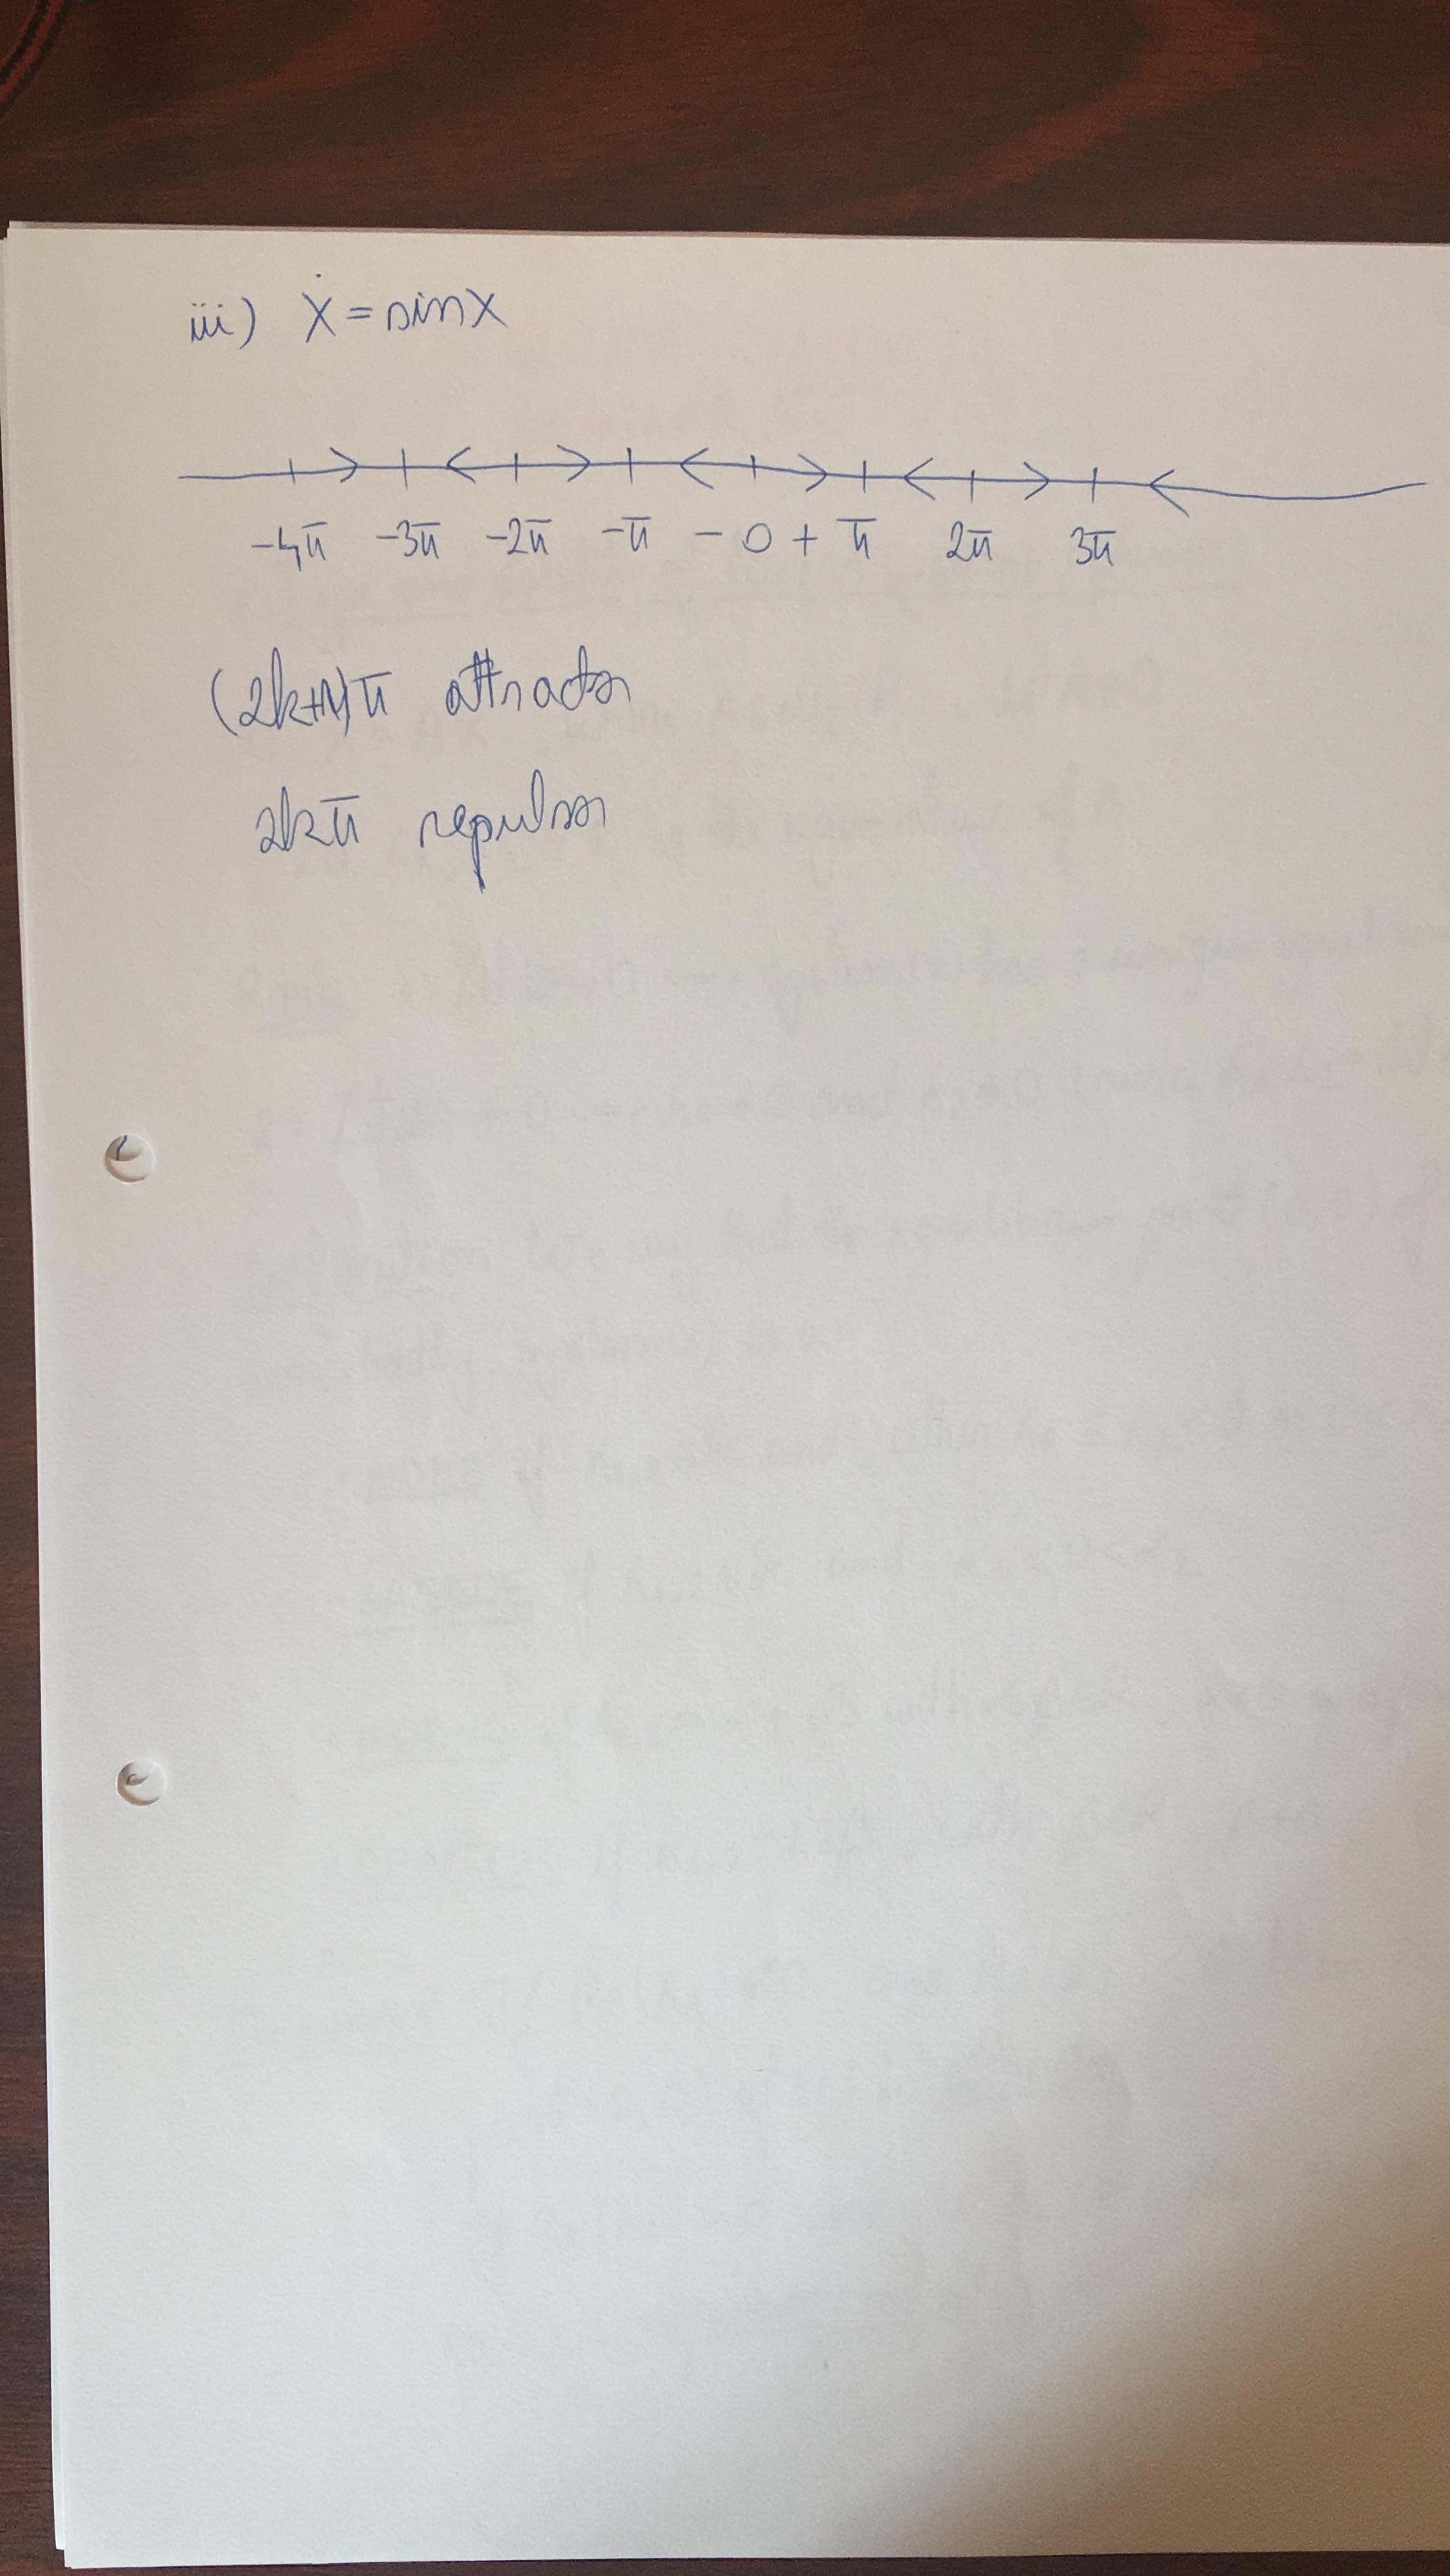 iii) ẋ = sin x
-4π -3π -2π -π - 0 + π 2π 3π
(2k+1)π attractor
2kπ repulsor